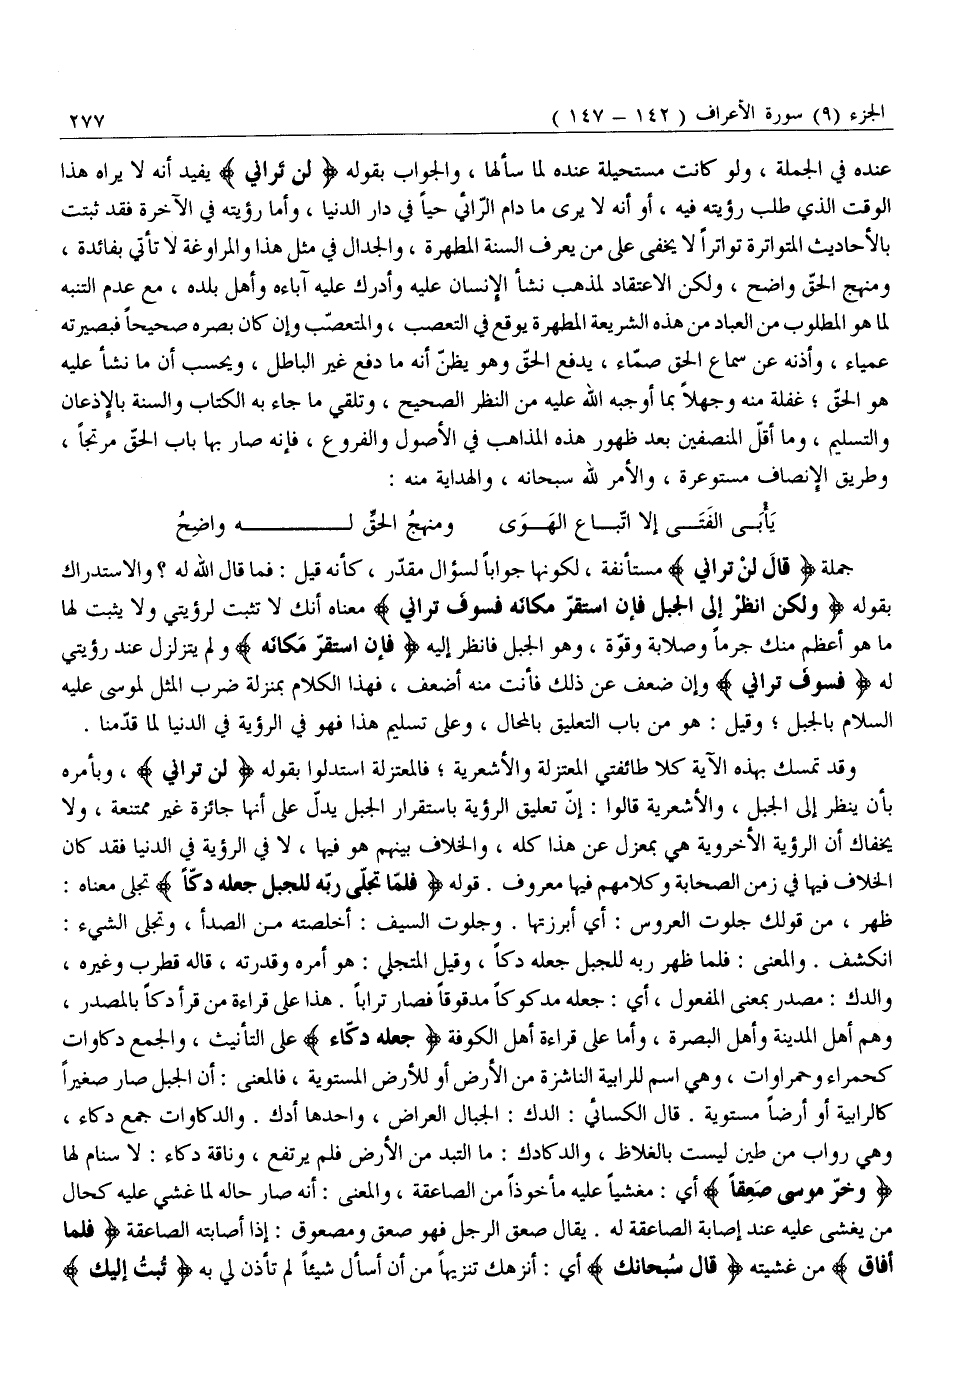 الجزء (٩) سورة الأعراف ( ١٤٢ – ١٤٧ )
٢٧٧
عنده في الجملة ، ولو كانت مستحيلة عنده لما سألها ، والجواب بقوله ﴿ لن تَراني ﴾ يفيد أنه لا يراه هذا
الوقت الذي طلب رؤيته فيه ، أو أنه لا يرى ما دام الرّائي حياً في دار الدنيا ، وأما رؤيته في الآخرة فقد ثبتت
بالأحاديث المتواترة تواتراً لا يخفى على من يعرف السنة المطهرة ، والجدال في مثل هذا والمراوغة لا تأتي بفائدة ،
ومنهج الحقّ واضح ، ولكن الاعتقاد لمذهب نشأ الإنسان عليه وأدرك عليه آباءه وأهل بلده ، مع عدم التنبه
لما هو المطلوب من العباد من هذه الشريعة المطهرة يوقع في التعصب ، والمتعصّب وإن كان بصره صحيحاً فبصيرته
عمياء ، وأذنه عن سماع الحق صمّاء ، يدفع الحقّ وهو يظنّ أنه ما دفع غير الباطل ، ويحسب أن ما نشأ عليه
هو الحقّ ؛ غفلة منه وجهلاً بما أوجبه الله عليه من النظر الصحيح ، وتلقي ما جاء به الكتاب والسنة بالإذعان
والتسليم ، وما أقلّ المنصفين بعد ظهور هذه المذاهب في الأصول والفروع ، فإنه صار بها باب الحقّ مرتجاً ،
وطريق الإنصاف مستوعرة ، والأمر لله سبحانه ، والهداية منه :
يَأْبَى الفَتَى إلا اتّباع الهَوَى ومنهجُ الحقِّ لـه واضِحُ
جملة ﴿ قالَ لنْ تراني ﴾ مستأنفة ، لكونها جواباً لسؤال مقدّر ، كأنه قيل : فما قال الله له ؟ والاستدراك
بقوله ﴿ ولكن انظرْ إلى الجبل فإن استقرّ مكانَه فسوفَ تراني ﴾ معناه أنك لا تثبت لرؤيتي ولا يثبت لها
ما هو أعظم منك جرماً وصلابة وقوّة ، وهو الجبل فانظر إليه ﴿ فإن استقرّ مَكانَه ﴾ ولم يتزلزل عند رؤيتي
له ﴿ فسوفَ تراني ﴾ وإن ضعف عن ذلك فأنت منه أضعف ، فهذا الكلام بمنزلة ضرب المثل لموسى عليه
السلام بالجبل ؛ وقيل : هو من باب التعليق بالمحال ، وعلى تسليم هذا فهو في الرؤية في الدنيا لما قدّمنا .
وقد تمسك بهذه الآية كلا طائفتي المعتزلة والأشعرية ؛ فالمعتزلة استدلوا بقوله ﴿ لن تراني ﴾ ، وبأمره
بأن ينظر إلى الجبل ، والأشعرية قالوا : إنّ تعليق الرؤية باستقرار الجبل يدلّ على أنها جائزة غير ممتنعة ، ولا
يخفاك أن الرؤية الأخروية هي بمعزل عن هذا كله ، والخلاف بينهم هو فيها ، لا في الرؤية في الدنيا فقد كان
الخلاف فيها في زمن الصحابة وكلامهم فيها معروف . قوله ﴿ فلمّا تجلّى ربّه للجبل جعله دكّاً ﴾ تجلى معناه :
ظهر ، من قولك جلوت العروس : أي أبرزتها . وجلوت السيف : أخلصته من الصدأ ، وتجلى الشيء :
انكشف . والمعنى : فلما ظهر ربه للجبل جعله دكاً ، وقيل المتجلي : هو أمره وقدرته ، قاله قطرب وغيره ،
والدك : مصدر بمعنى المفعول ، أي : جعله مدكوكاً مدقوقاً فصار تراباً . هذا على قراءة من قرأ دكاً بالمصدر ،
وهم أهل المدينة وأهل البصرة ، وأما على قراءة أهل الكوفة ﴿ جعله دكّاء ﴾ على التأنيث ، والجمع دكاوات
كحمراء وحمراوات ، وهي اسم للرابية الناشزة من الأرض أو للأرض المستوية ، فالمعنى : أن الجبل صار صغيراً
كالرابية أو أرضاً مستوية . قال الكسائي : الدك : الجبال العراض ، واحدها أدك . والدكاوات جمع دكاء ،
وهي رواب من طين ليست بالغلاظ ، والدكادك : ما التبد من الأرض فلم يرتفع ، وناقة دكاء : لا سنام لها
﴿ وخرّ موسى صَعِقاً ﴾ أي : مغشياً عليه مأخوذاً من الصاعقة ، والمعنى : أنه صار حاله لما غشي عليه كحال
من يغشى عليه عند إصابة الصاعقة له . يقال صعق الرجل فهو صعق ومصعوق : إذا أصابته الصاعقة ﴿ فلما
أفاق ﴾ من غشيته ﴿ قال سُبحانك ﴾ أي : أنزهك تنزيهاً من أن أسأل شيئاً لم تأذن لي به ﴿ تُبتُ إليك ﴾